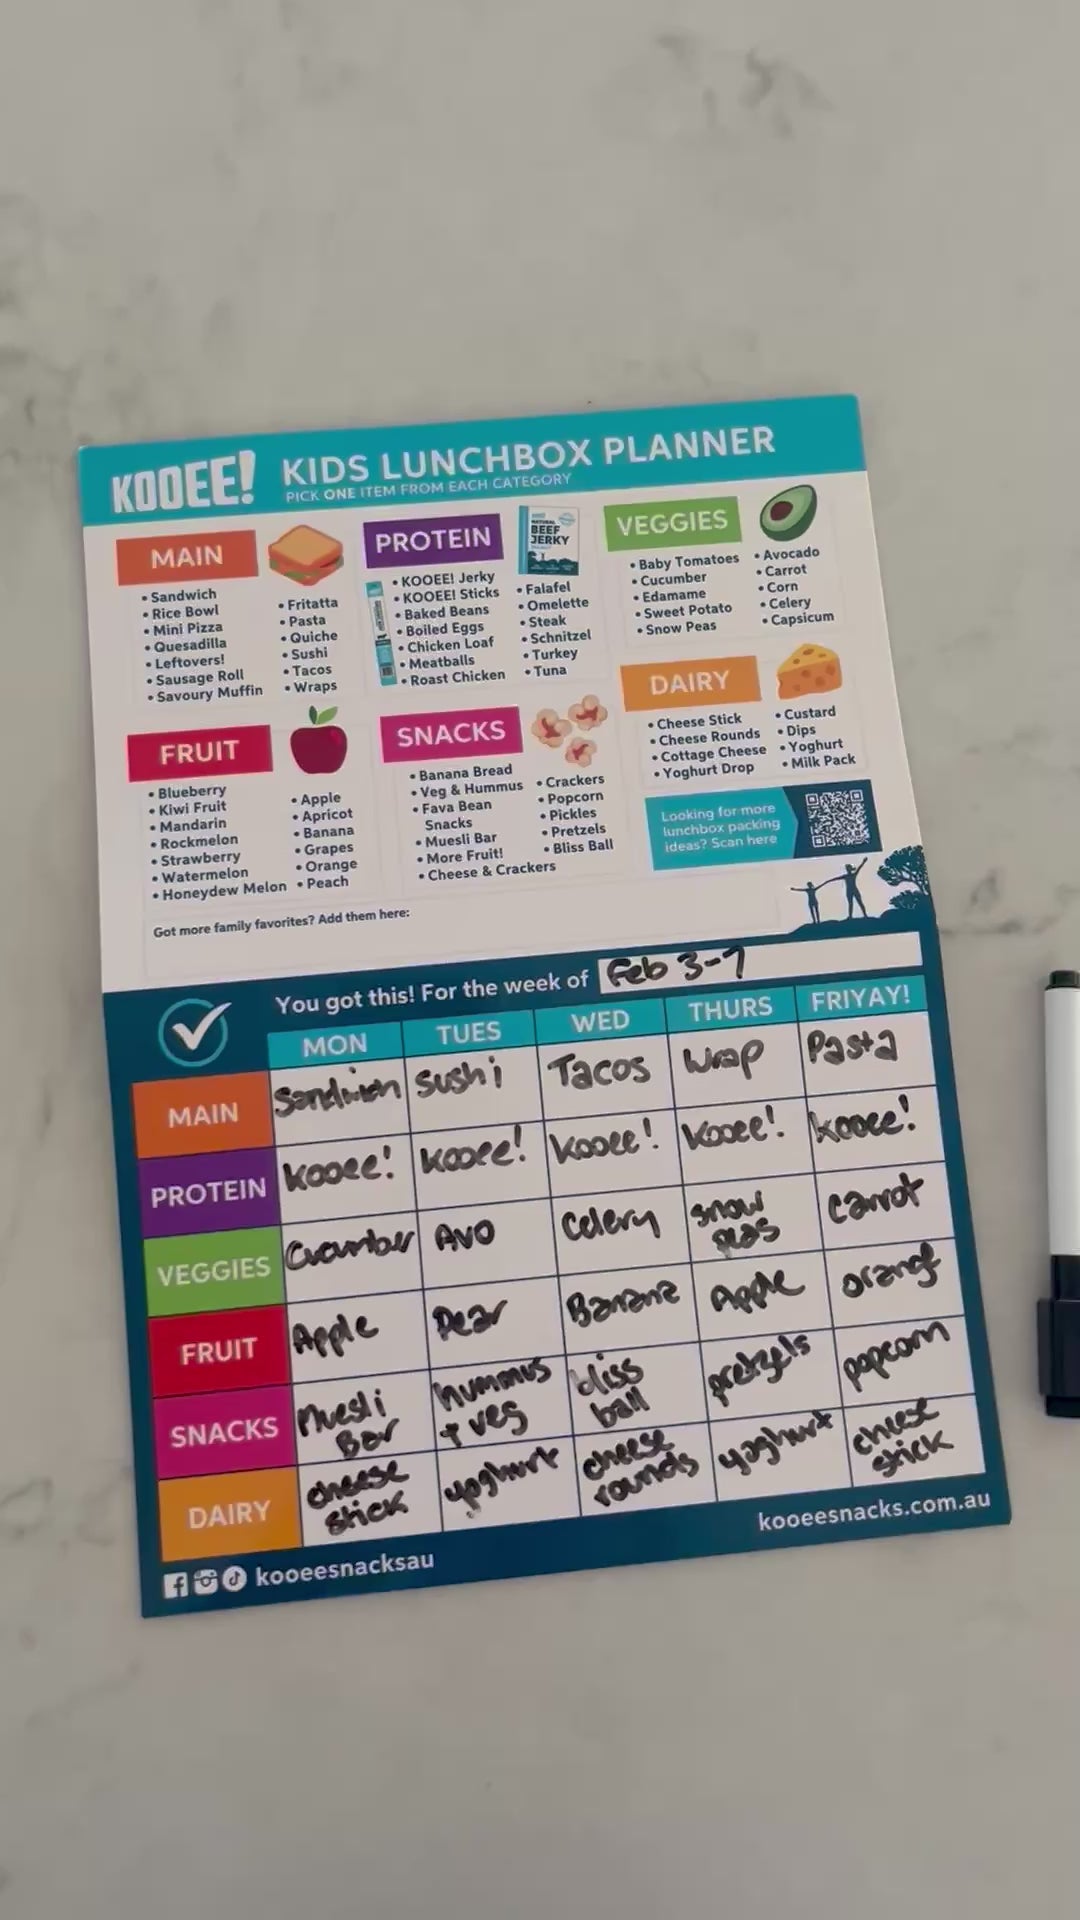 KOOEE! KIDS LUNCHBOX PLANNER
PICK ONE ITEM FROM EACH CATEGORY
MAIN
• Sandwich
• Rice Bowl
• Mini Pizza
• Quesadilla
• Leftovers!
• Sausage Roll
• Savoury Muffin
• Fritatta
• Pasta
• Quiche
• Sushi
• Tacos
• Wraps
PROTEIN
NATURAL
BEEF
JERKY
• KOOEE! Jerky
• KOOEE! Sticks
• Baked Beans
• Boiled Eggs
• Chicken Loaf
• Meatballs
• Roast Chicken
• Falafel
• Omelette
• Steak
• Schnitzel
• Turkey
• Tuna
VEGGIES
• Baby Tomatoes
• Cucumber
• Edamame
• Sweet Potato
• Snow Peas
• Avocado
• Carrot
• Corn
• Celery
• Capsicum
FRUIT
• Blueberry
• Kiwi Fruit
• Mandarin
• Rockmelon
• Strawberry
• Watermelon
• Honeydew Melon
• Apple
• Apricot
• Banana
• Grapes
• Orange
• Peach
SNACKS
• Banana Bread
• Veg & Hummus
• Fava Bean
Snacks
• Muesli Bar
• More Fruit!
• Cheese & Crackers
• Crackers
• Popcorn
• Pickles
• Pretzels
• Bliss Ball
DAIRY
• Cheese Stick
• Cheese Rounds
• Cottage Cheese
• Yoghurt Drop
• Custard
• Dips
• Yoghurt
• Milk Pack
Looking for more
lunchbox packing
ideas? Scan here
Got more family favorites? Add them here:
You got this! For the week of Feb 3-7
MON TUES WED THURS FRIYAY!
MAIN Sandwich Sushi Tacos Wrap Pasta
PROTEIN Kooee! Kooee! Kooee! Kooee! Kooee!
VEGGIES Cucumber Avo Celery snow peas carrot
FRUIT Apple Pear Banana Apple orange
SNACKS Muesli Bar hummus + veg bliss ball pretzels popcorn
DAIRY cheese stick yoghurt cheese rounds yoghurt cheese stick
kooeesnacksau
kooeesnacks.com.au